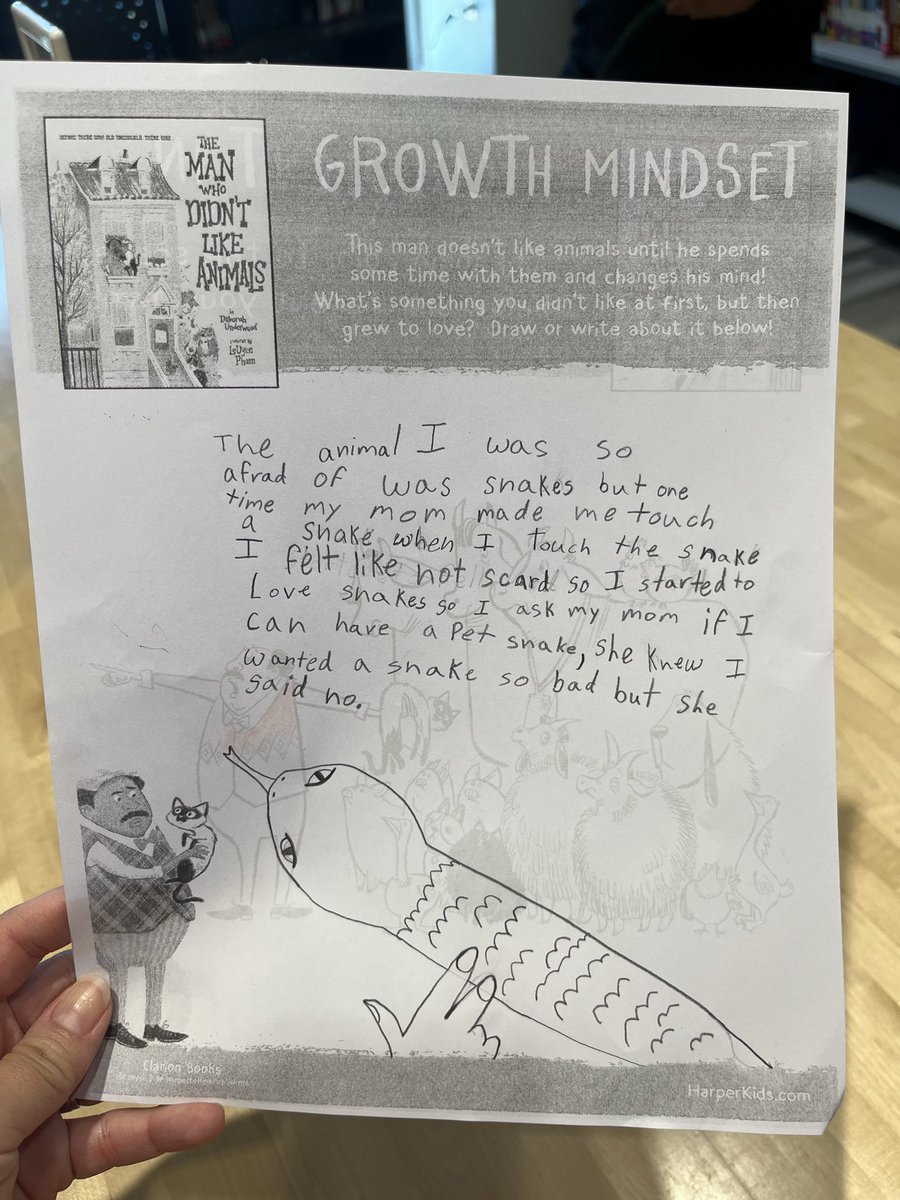 BEFORE THERE WAS OLD MACDONALD, THERE WAS
THE
MAN
WHO
DIDN'T
LIKE
ANIMALS
by
Deborah
Underwood
LeUyen
Pham
GROWTH MINDSET
This man doesn't like animals until he spends
some time with them and changes his mind!
What's something you didn't like at first, but then
grew to love? Draw or write about it below!
The animal I was so
afrad of was snakes but one
time my mom made me touch
a snake when I touch the snake
I felt like not scard so I started to
Love snakes so I ask my mom if I
can have a Pet snake, she knew I
wanted a snake so bad but she
said no.
Clarion Books
An imprint of HarperCollinsPublishers
HarperKids.com